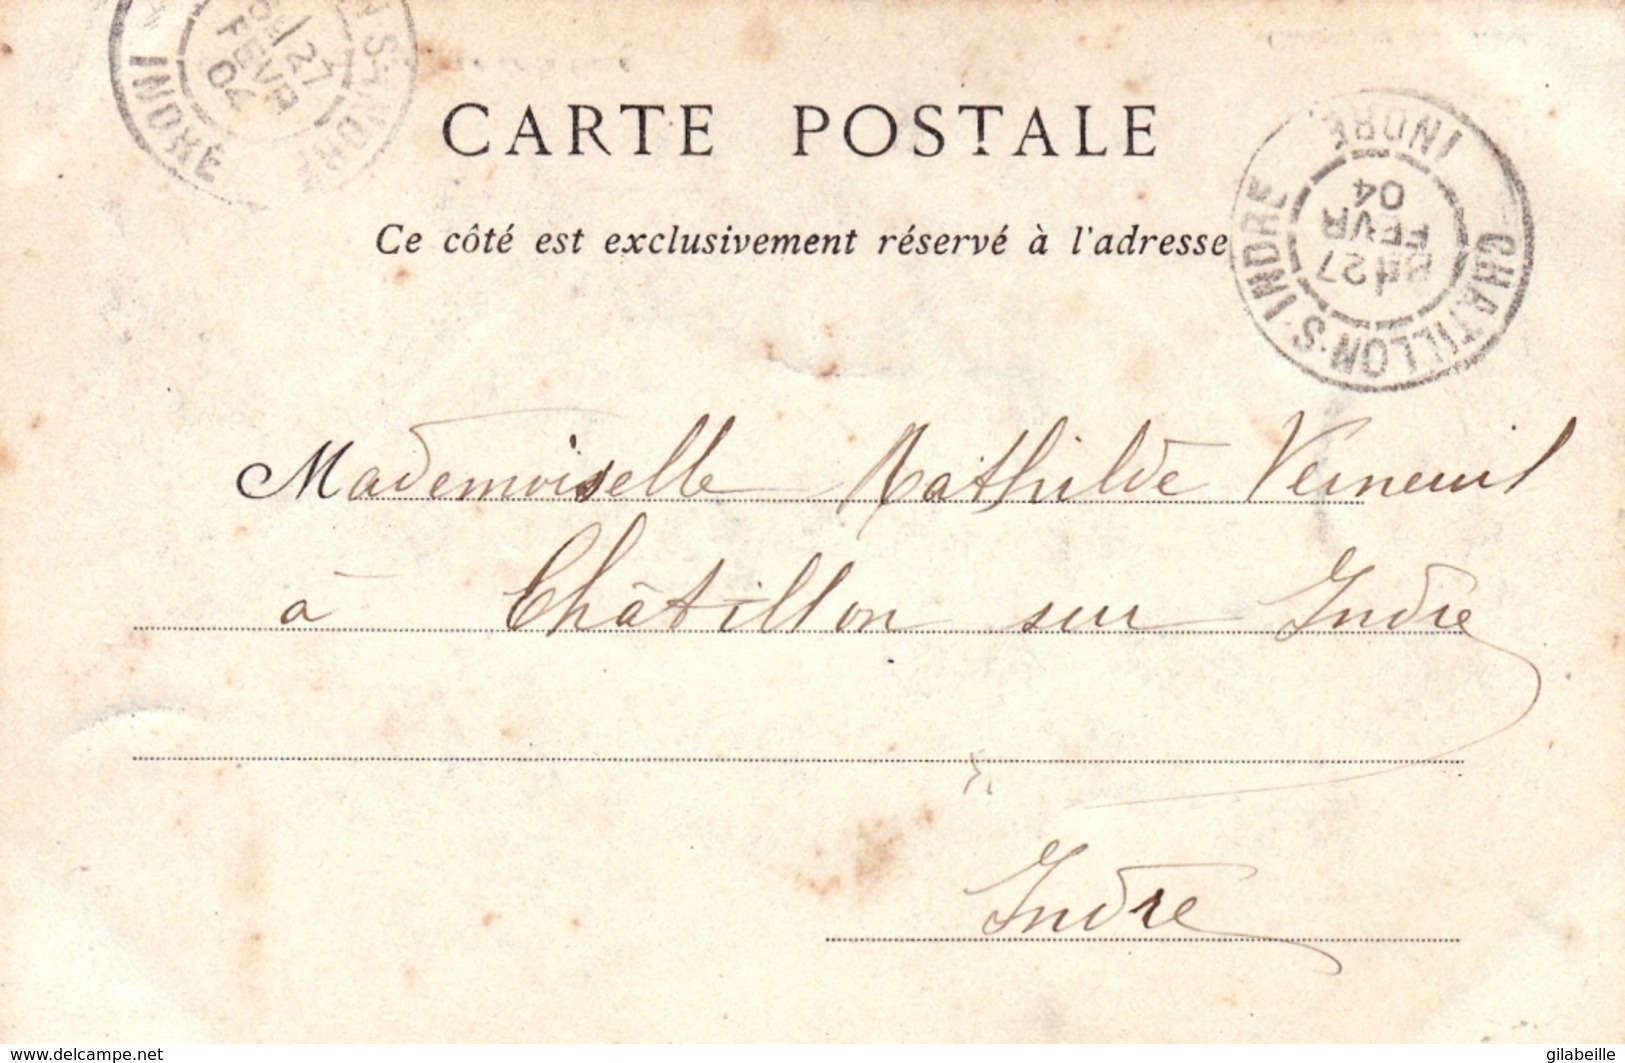 N-S-INDRE
INDRE
27
FEVR
04
CARTE POSTALE
Ce côté est exclusivement réservé à l'adresse
CHATILLON-S-INDRE
INDRE
8E 27
FEVR
04
Mademoiselle Mathilde Verneuil
à Châtillon sur Indre
Indre
www.delcampe.net
gilabeille